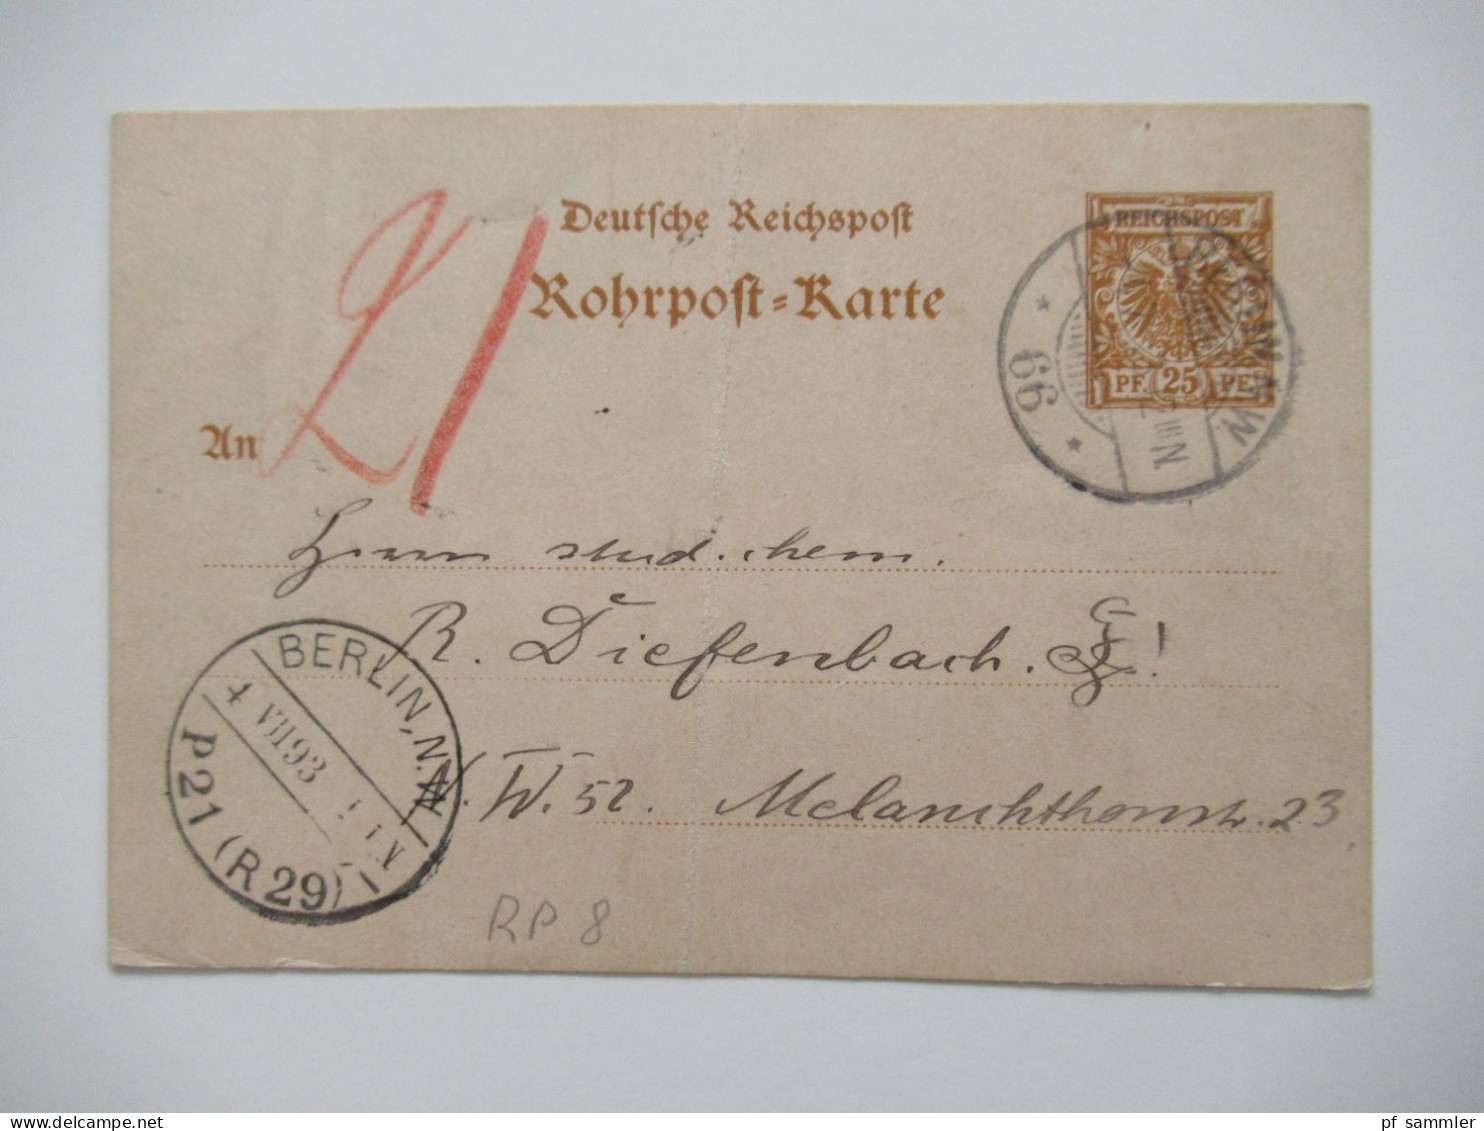 Deutsche Reichspost
Rohrpost-Karte
REICHSPOST
PF. 25 PF.
66
N.W.
21
An
Herrn stud. chem.
R. Diefenbach.
N.W. 52. Melanchthonstr. 23
BERLIN, N.W.
4 VII 93
P 21 (R 29)
RP 8
pf sammler